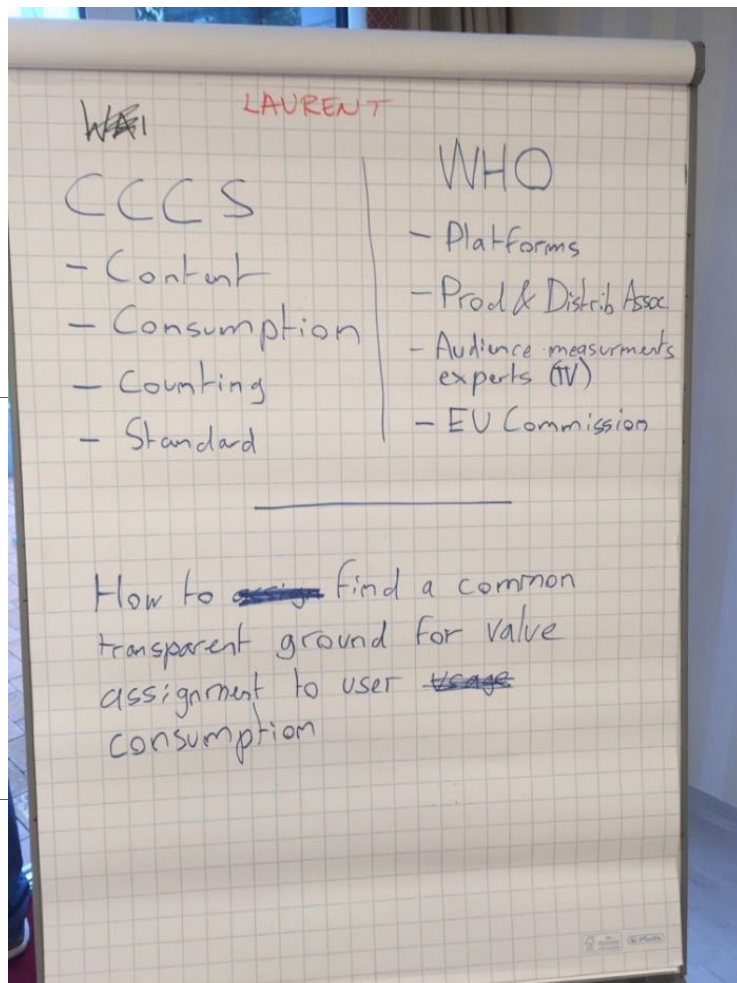 LAURENT
CCCS
- Content
- Consumption
- Counting
- Standard
WHO
- Platforms
- Prod & Distrib Assoc
- Audience measurments
experts (TV)
- EU Commission
How to find a common
transparent ground for value
assignment to user
consumption